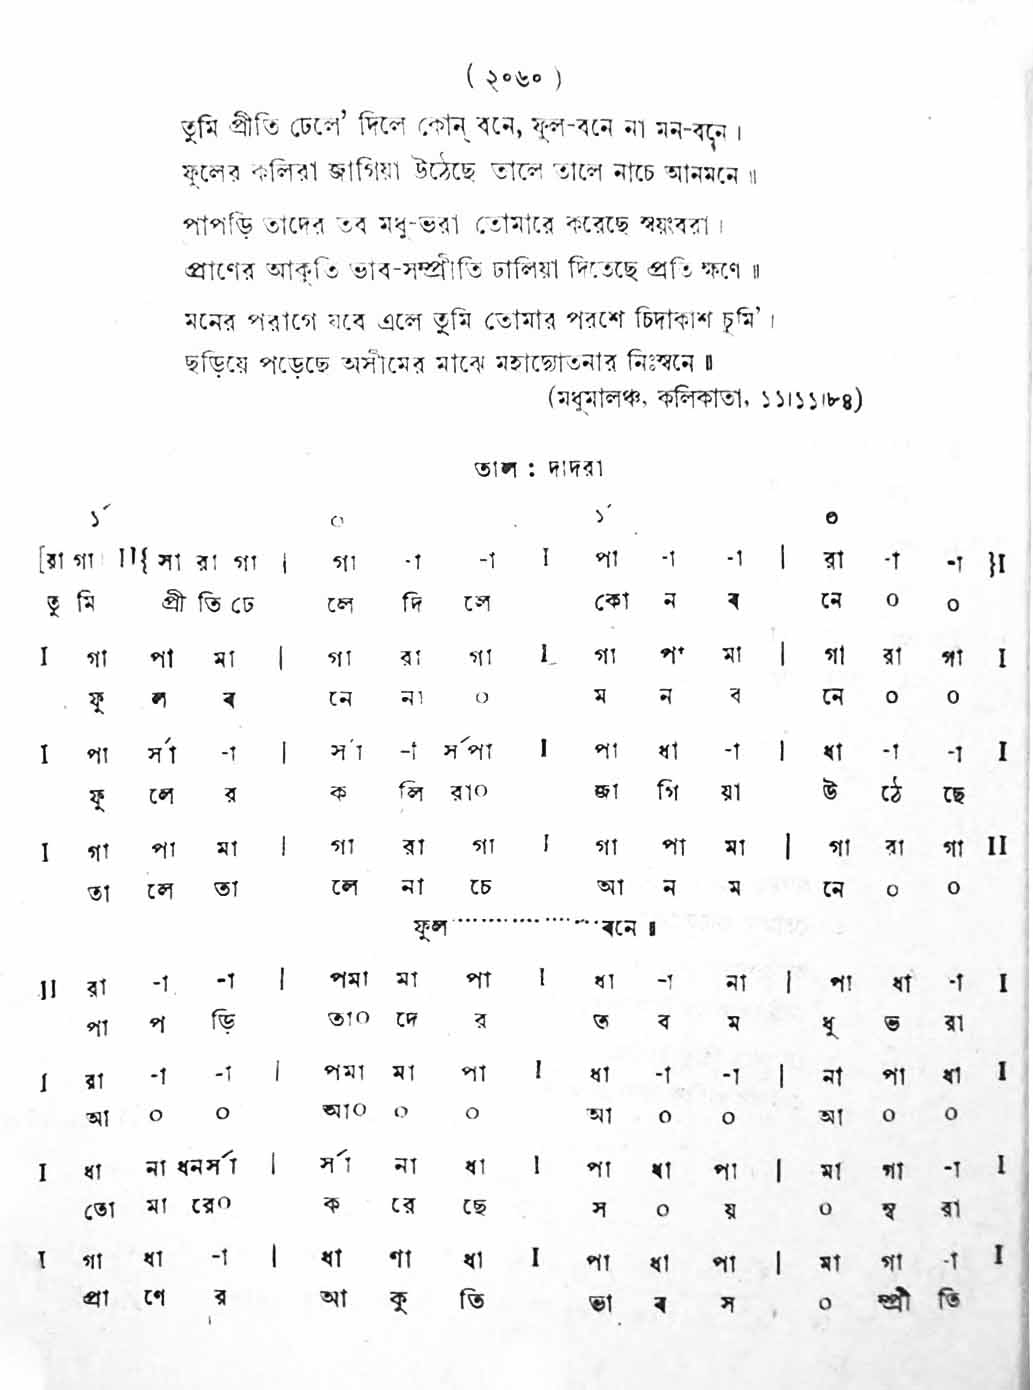 ( ২০৬০ )
তুমি প্রীতি ঢেলে' দিলে কোন্ বনে, ফুল-বনে না মন-বনে।
ফুলের কলিরা জাগিয়া উঠেছে তালে তালে নাচে আনমনে॥
পাপড়ি তাদের তব মধু-ভরা তোমারে করেছে স্বয়ংবরা।
প্রাণের আকুতি ভাব-সম্প্রীতি ঢালিয়া দিতেছে প্রতি ক্ষণে॥
মনের পরাগে যবে এলে তুমি তোমার পরশে চিদাকাশ চুমি'।
ছড়িয়ে পড়েছে অসীমের মাঝে মহাদ্যোতনার নিঃস্বনে॥
(মধুমালঞ্চ, কলিকাতা, ১১।১১।৮৪)
তাল : দাদরা
১´ ০ ১´ ০
[রা গা II{ সা রা গা | গা -া -া I পা -া -া | রা -া -া }I
তু মি প্রী তি ঢে লে দি লে কো ন ব নে ০ ০
I গা পা মা | গা রা গা I গা পা মা | গা রা গা I
ফু ল ব নে না ০ ম ন ব নে ০ ০
I পা র্সা -া | র্সা -া র্সপা I পা ধা -া | ধা -া -া I
ফু লে র ক লি রা০ জা গি য়া উ ঠে ছে
I গা পা মা | গা রা গা I গা পা মা | গা রা গা II
তা লে তা লে না চে আ ন ম নে ০ ০
ফুল..................বনে॥
II রা -া -া | পমা মা পা I ধা -া না | পা ধা -া I
পা প ড়ি তা০ দে র ত ব ম ধু ভ রা
I রা -া -া | পমা মা পা I ধা -া -া | না পা ধা I
আ ০ ০ আ০ ০ ০ আ ০ ০ আ ০ ০
I ধা না ধনর্সা | র্সা না ধা I পা ধা পা | মা গা -া I
তো মা রে০ ক রে ছে স ০ য় ০ ম্ব রা
I গা ধা -া | ধা ণা ধা I পা ধা পা | মা গা -া I
প্রা ণে র আ কু তি ভা ব স ০ ম্প্রী তি